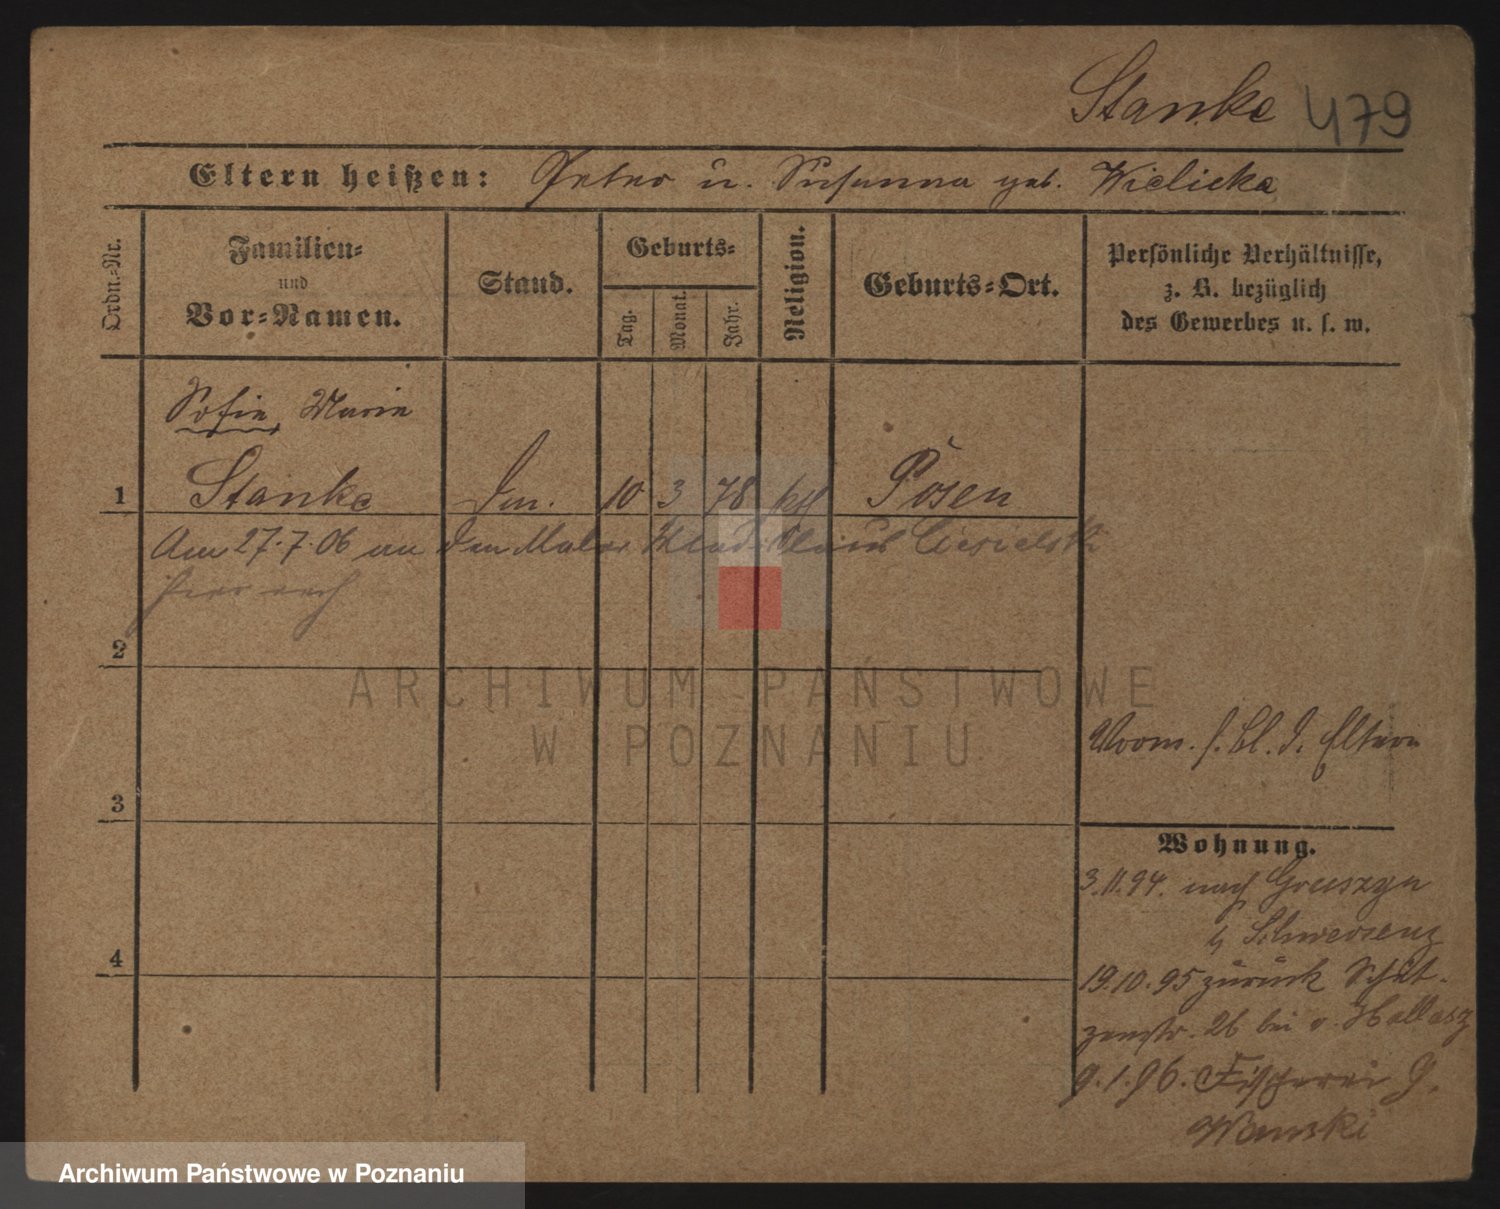 Stanke 479
Eltern heißen: Peter u. Susanna geb. Wielicka
Ordn.=Nr.
Familien=
und
Vor=Namen.
Stand.
Geburts=
Tag.
Monat.
Jahr.
Religion.
Geburts=Ort.
Persönliche Verhältnisse,
z. B. bezüglich
des Gewerbes u. s. w.
Sofie Marie
1 Stanke 10 3 78 kth Posen
Am 27.7.06 an den Maler Wladislaus Ciesielski
hier
2
3
4
d. Eltern
Wohnung.
3.11.94. nach Gruszyn
b/ Schwersenz
19.10.95 zurück Schüt-
zenstr. 26 bei v. Hallasz
9.1.96. Fischerei 9.
Wanski
ARCHIWUM PAŃSTWOWE
W POZNANIU
Archiwum Państwowe w Poznaniu